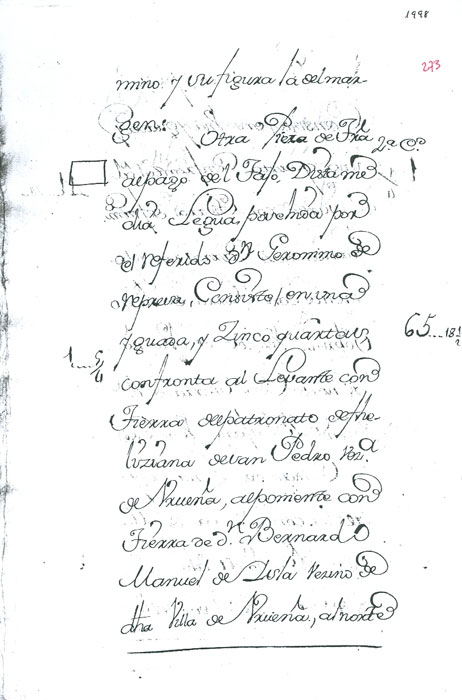 1998
273
mino y su figura la del mar-
gen: Otra Pieza de Trã 2ª Cᵒ
al pazo del Dista me
dia Legua, posehida por
el referido Dⁿ Geronimo de
Consiste, en una
Iguada, y Zinco quartas 65...18½
1...5/4
confronta al Levante con
Tierra del patronato de
de San Pedro Vezª
de Arueña, al poniente con
Tierra de dⁿ Bernardo
Manuel de Vezino de
dha Villa de Arueña, al norte